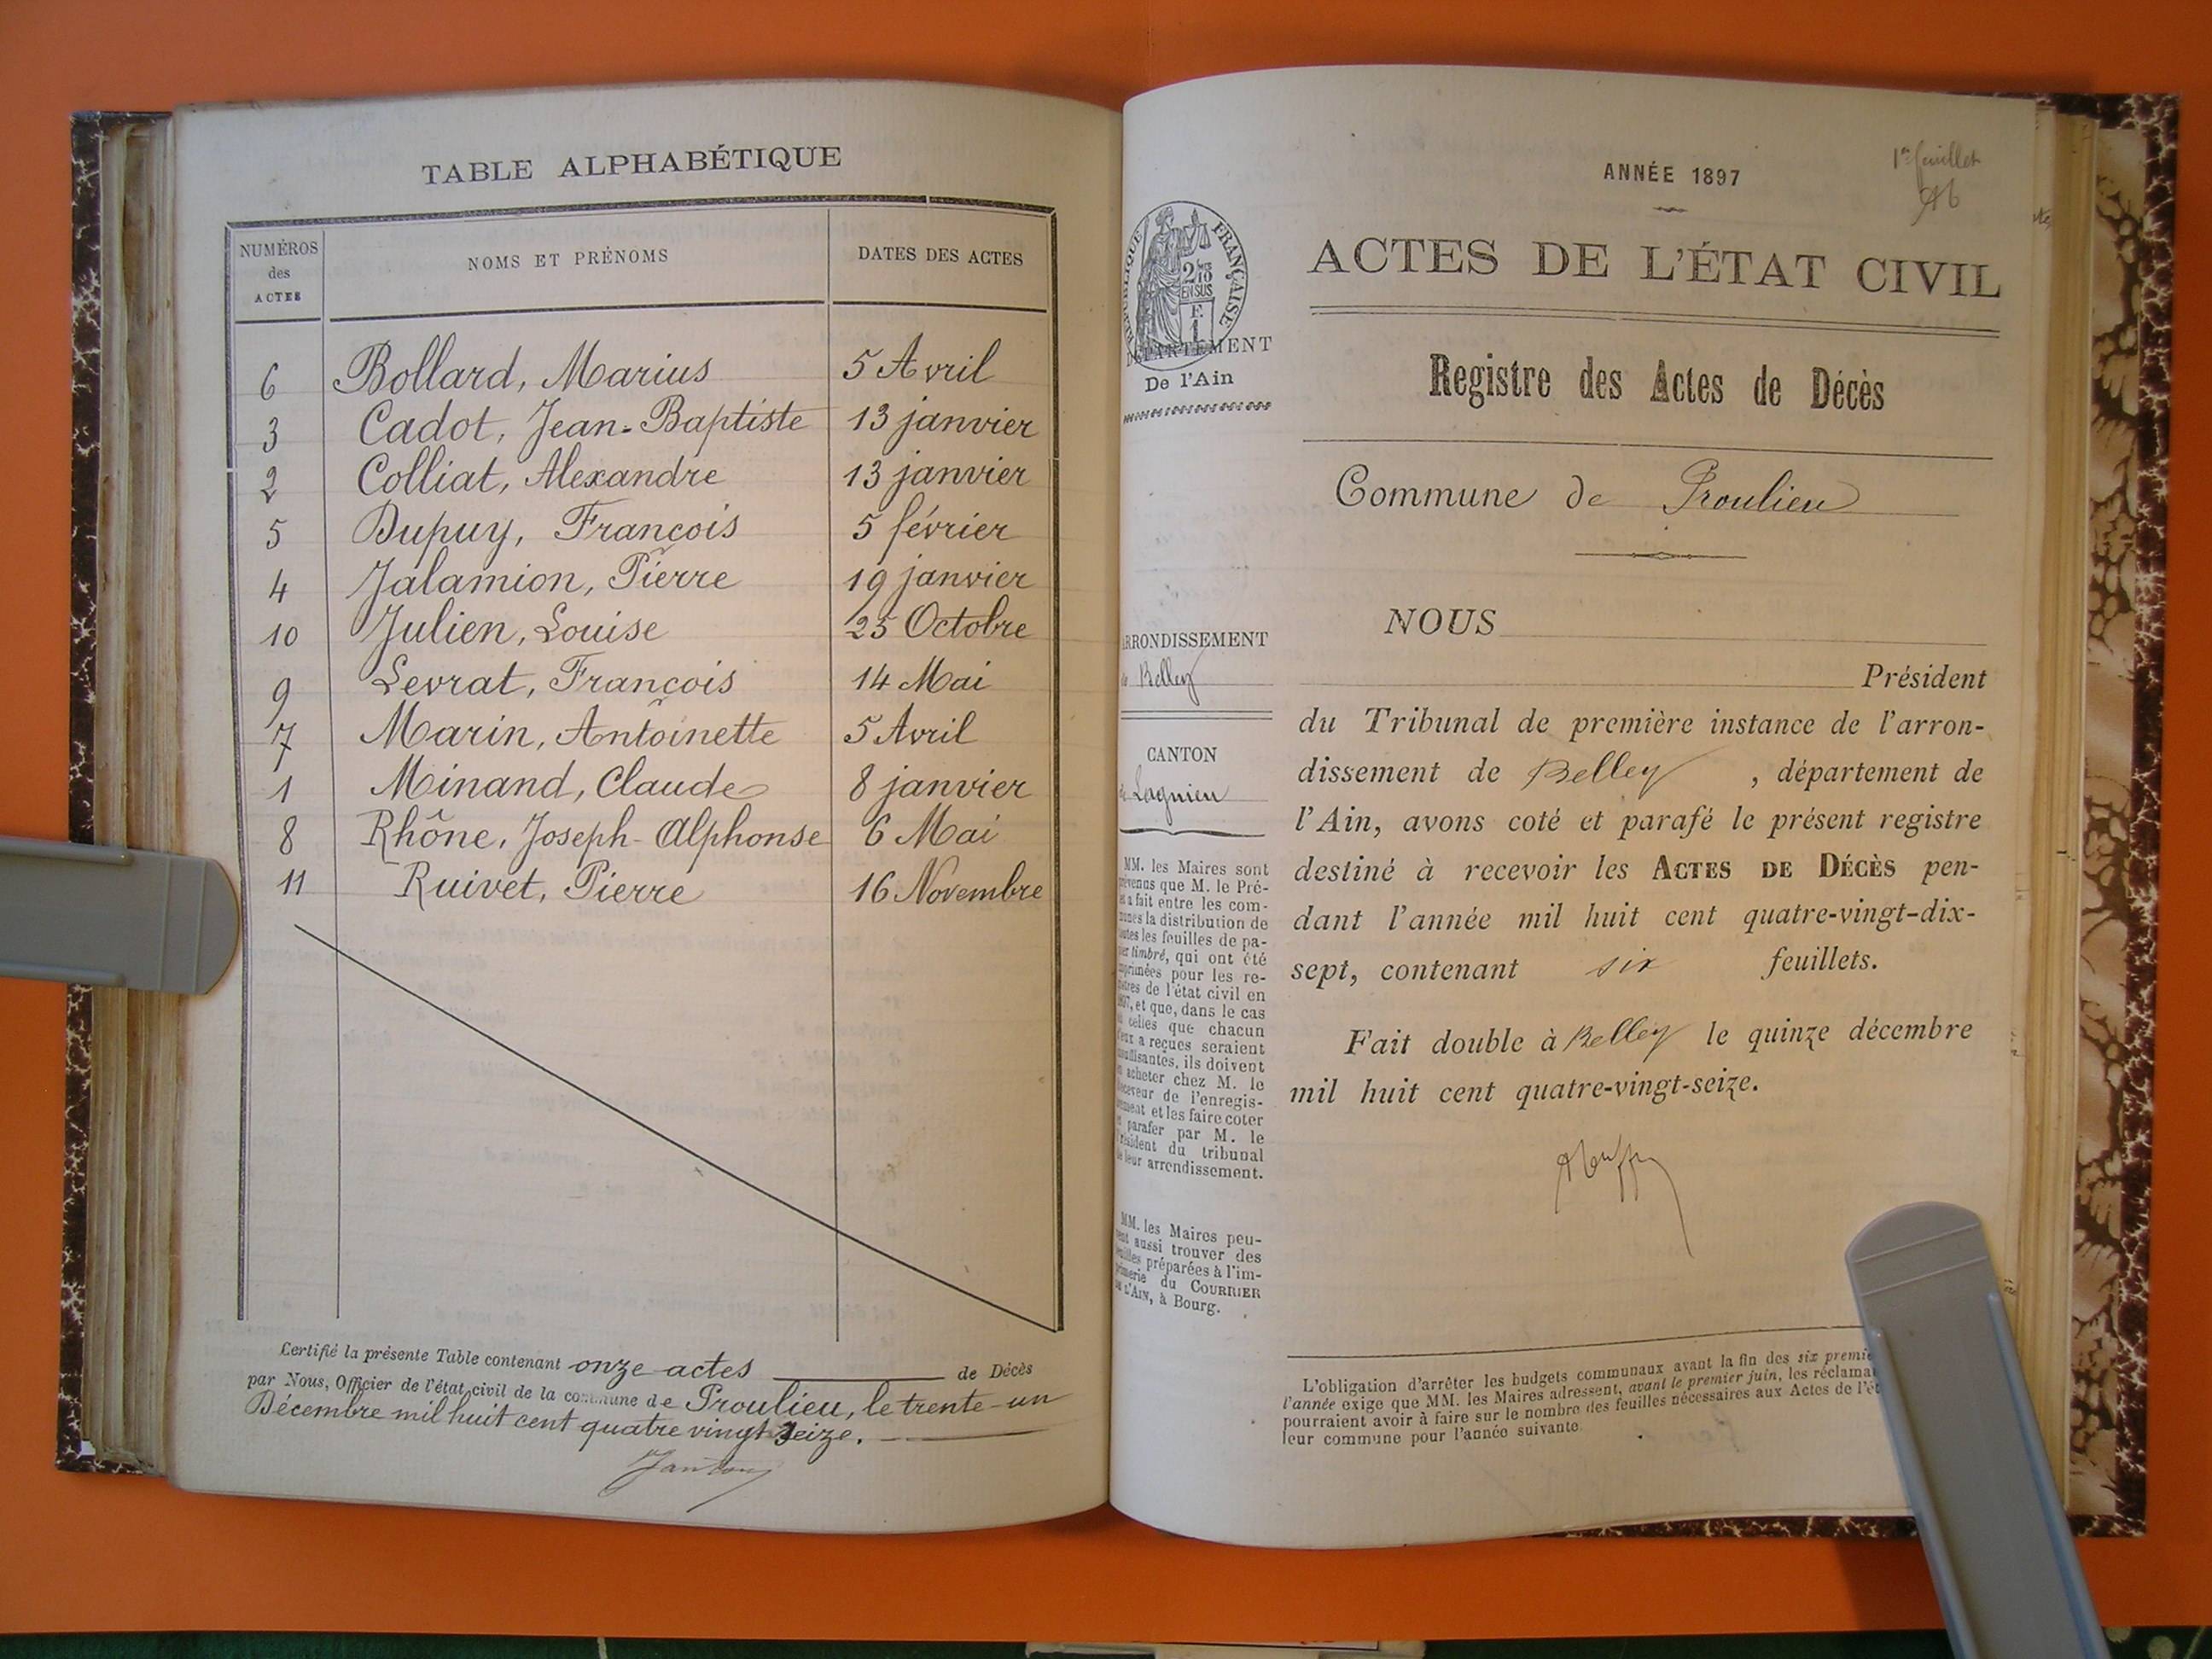 TABLE ALPHABÉTIQUE
NUMÉROS des ACTES NOMS ET PRÉNOMS DATES DES ACTES
6 Bollard, Marius 5 Avril
3 Cadot, Jean-Baptiste 13 janvier
2 Colliat, Alexandre 13 janvier
5 Dupuy, François 5 février
4 Jalamion, Pierre 19 janvier
10 Julien, Louise 25 Octobre
9 Levrat, François 14 Mai
7 Marin, Antoinette 5 Avril
1 Minand, Claude 8 janvier
8 Rhône, Joseph-Alphonse 6 Mai
11 Ruivet, Pierre 16 Novembre
Certifié la présente Table contenant onze actes de Décès
par Nous, Officier de l'état civil de la commune de Proulieu, le trente-un
Décembre mil huit cent quatre vingt seize.
1er feuillet
ANNÉE 1897
RÉPUBLIQUE FRANÇAISE
2/10
EN SUS
F.
1
DÉPARTEMENT
De l'Ain
ARRONDISSEMENT
de Belley
CANTON
de Lagnieu
MM. les Maires sont
prévenus que M. le Pré-
fet a fait entre les com-
munes la distribution de
toutes les feuilles de pa-
pier timbré, qui ont été
imprimées pour les re-
gistres de l'état civil en
1897, et que, dans le cas
où celles que chacun
d'eux a reçues seraient
insuffisantes, ils doivent
en acheter chez M. le
Receveur de l'enregis-
trement et les faire coter
et parafer par M. le
Président du tribunal
de leur arrondissement.
MM. les Maires peu-
vent aussi trouver des
feuilles préparées à l'im-
primerie du COURRIER
DE L'AIN, à Bourg.
ACTES DE L'ÉTAT CIVIL
Registre des Actes de Décès
Commune de Proulieu
NOUS
Président
du Tribunal de première instance de l'arron-
dissement de Belley , département de
l'Ain, avons coté et parafé le présent registre
destiné à recevoir les ACTES DE DÉCÈS pen-
dant l'année mil huit cent quatre-vingt-dix-
sept, contenant six feuillets.
Fait double à Belley le quinze décembre
mil huit cent quatre-vingt-seize.
L'obligation d'arrêter les budgets communaux avant la fin des six premie
l'année exige que MM. les Maires adressent, avant le premier juin, les réclama
pourraient avoir à faire sur le nombre des feuilles nécessaires aux Actes de l'ét
leur commune pour l'année suivante.